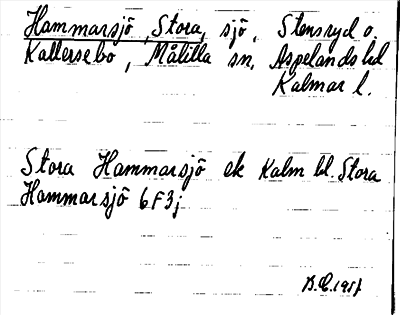 Hammarsjö, Stora, sjö, Stensryd o.
Kallersebo, Målilla sn, Aspelands hd
Kalmar l.
Stora Hammarsjö ek Kalm bl. Stora
Hammarsjö 6F3j